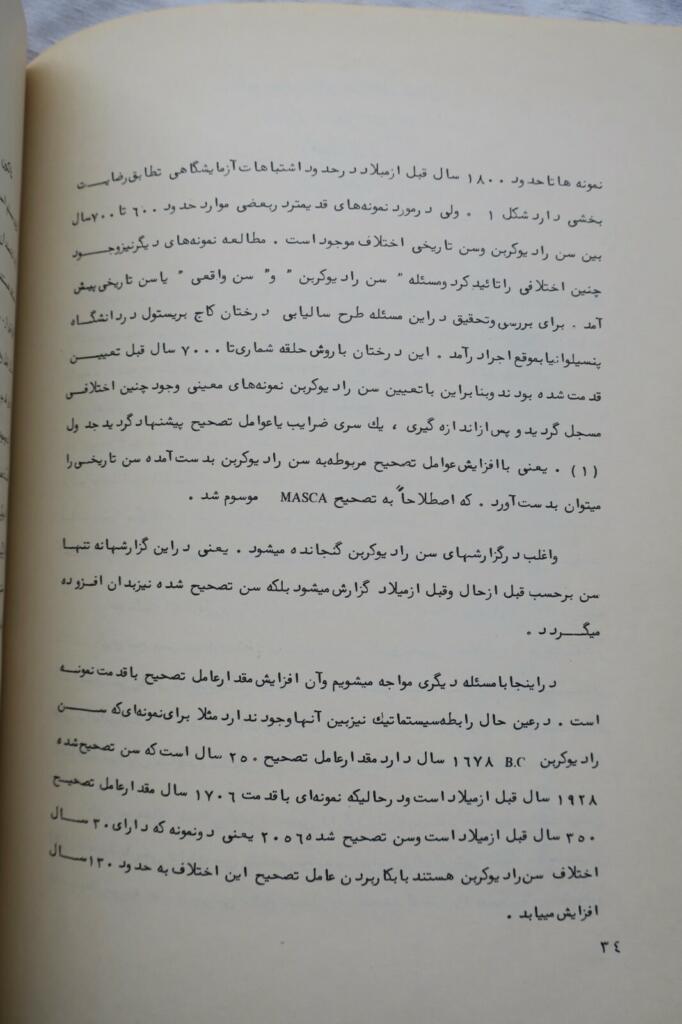 نمونه ها تا حدود ۱۸۰۰ سال قبل از میلاد در حدود اشتباهات آزمایشگاهی تطابق رضایت
بخشی دارد شکل ۱ . ولی در مورد نمونه‌های قدیمتر در بعضی موارد حدود ۶۰۰ تا ۷۰۰ سال
بین سن رادیوکربن وسن تاریخی اختلاف موجود است . مطالعه نمونه‌های دیگر نیز وجود
چنین اختلافی را تائید کرد ومسئله " سن رادیوکربن " و" سن واقعی " یا سن تاریخی پیش
آمد . برای بررسی وتحقیق در این مسئله طرح سالیابی درختان کاج بریستول در دانشگاه
پنسیلوانیا بموقع اجرا در آمد . این درختان با روش حلقه شماری تا ۷۰۰۰ سال قبل تعیین
قدمت شده بودند وبنابراین با تعیین سن رادیوکربن نمونه‌های معینی وجود چنین اختلافی
مسجل گردید و پس از اندازه گیری ، یك سری ضرایب یا عوامل تصحیح پیشنهاد گردید جدول
(۱) . یعنی با افزایش عوامل تصحیح مربوطه به سن رادیوکربن بدست آمده سن تاریخی را
میتوان بدست آورد . که اصطلاحاً به تصحیح MASCA موسوم شد .
واغلب در گزارشهای سن رادیوکربن گنجانده میشود . یعنی در این گزارشها نه تنها
سن برحسب قبل از حال وقبل از میلاد گزارش میشود بلکه سن تصحیح شده نیز بدان افزوده
میگردد .
در اینجا با مسئله دیگری مواجه میشویم وآن افزایش مقدار عامل تصحیح با قدمت نمونه
است . در عین حال رابطه سیستماتیك نیز بین آنها وجود ندارد مثلا برای نمونه‌ای که سن
رادیوکربن B.C ۱۶۷۸ سال دارد مقدار عامل تصحیح ۲۵۰ سال است که سن تصحیح شده
۱۹۲۸ سال قبل از میلاد است ودر حالیکه نمونه‌ای با قدمت ۱۷۰۶ سال مقدار عامل تصحیح
۳۵۰ سال قبل از میلاد است وسن تصحیح شده ۲۰۵۶ یعنی دو نمونه که دارای ۳۰ سال
اختلاف سن رادیوکربن هستند با بکار بردن عامل تصحیح این اختلاف به حدود ۱۳۰ سال
افزایش مییابد .
۳۴